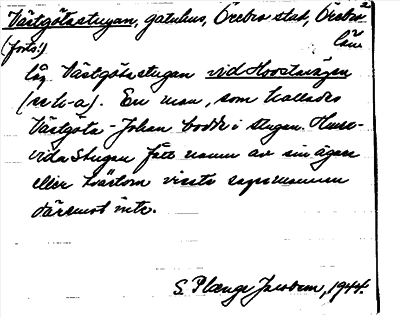 Västgötastugan, gatuhus, Örebro stad, Örebro 2
(forts.) län
låg Västgötastugan vid Hovstavägen
(se h-a). En man, som kallades
Västgöta-Johan bodde i stugan. Huru-
vida Stugan fått namn av sin ägare
eller tvärtom visste sagesmannen
däremot inte.
S. Plænge Jacobson, 1944.